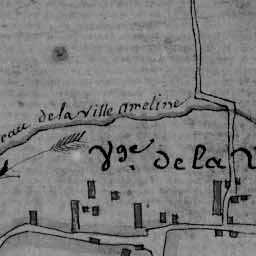 eau de la ville ameline
Vge. de la V